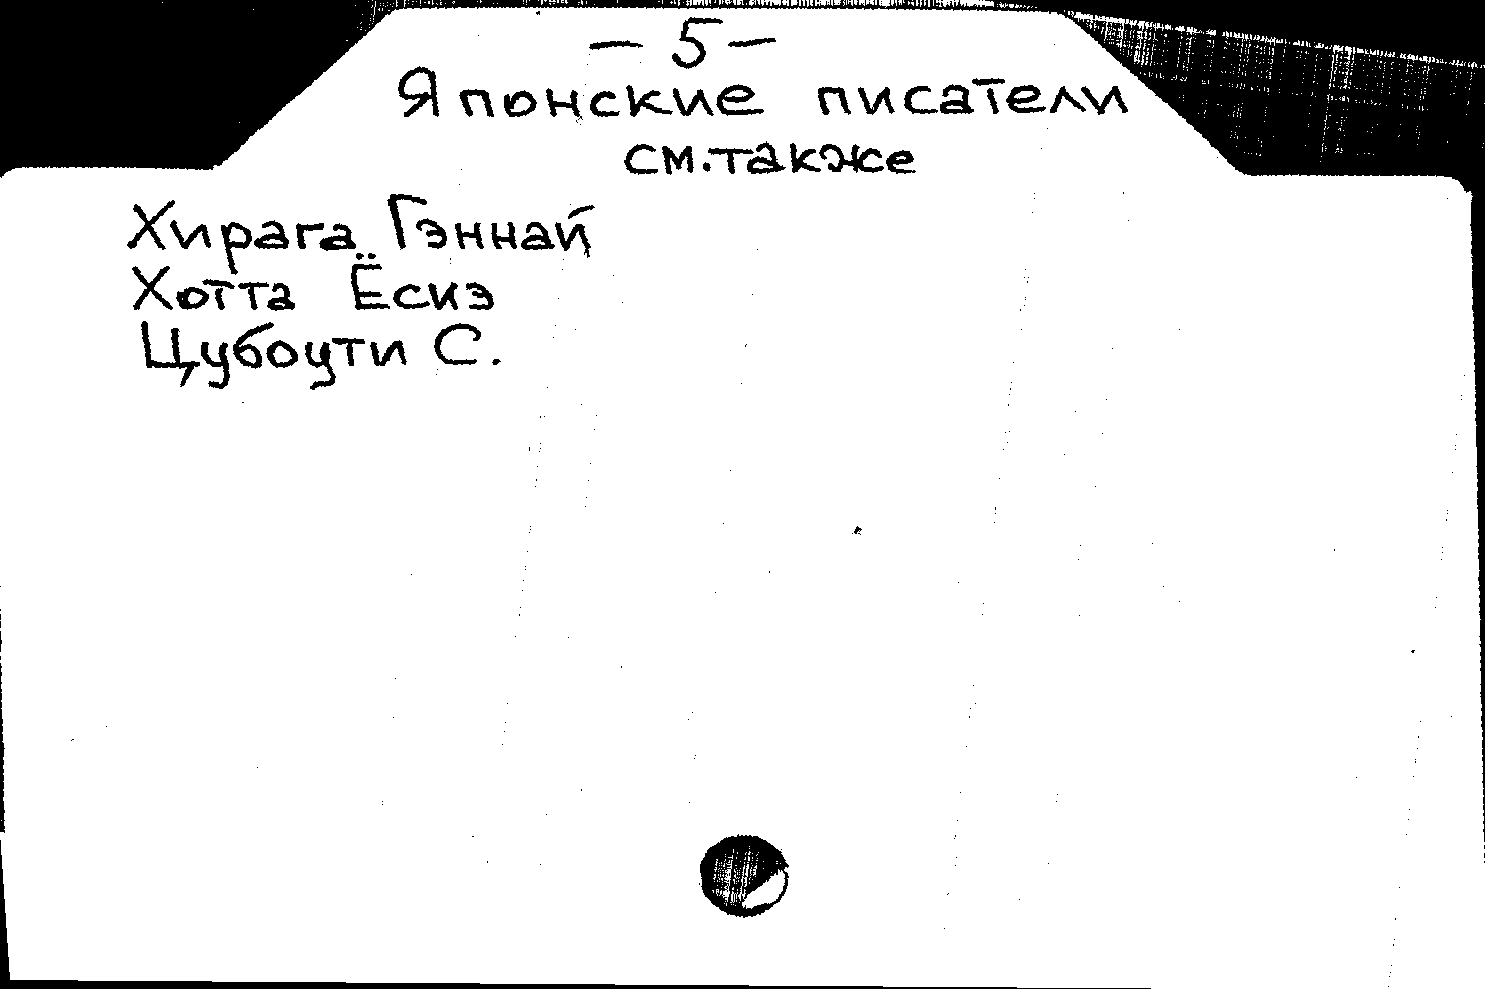 – 5 –
Японские писатели
см. также
Хирага Гэннай
Хотта Ёсиэ
Цубоути С.